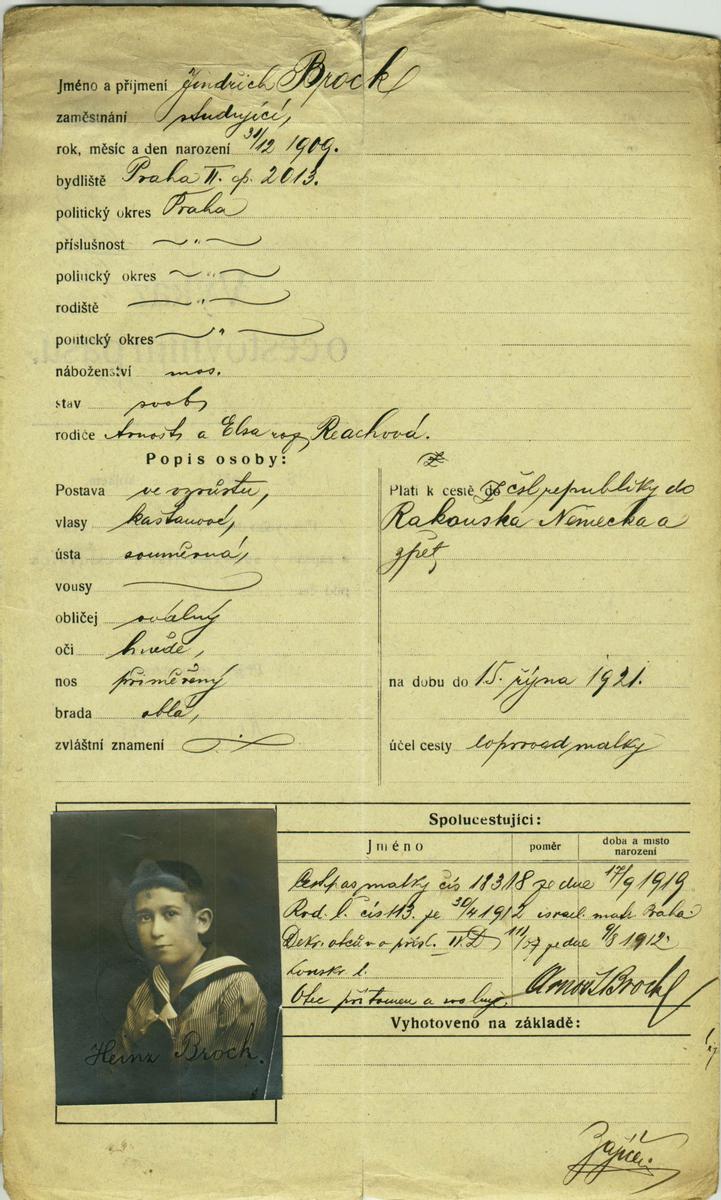 Jméno a příjmení Jindřich Brock
zaměstnání studující,
rok, měsíc a den narození 31/12 1909.
bydliště Praha II. čp. 2013.
politický okres Praha
příslušnost ~ " ~
politický okres ~ " ~
rodiště ~ " ~
politický okres ~ " ~
náboženství mos.
stav svob,
rodiče Arnošt a Elsa roz, Reachová.
Popis osoby:
Postava ve vzrůstu,
vlasy kaštanové,
ústa souměrná,
vousy
obličej oválný
oči hnědé,
nos přiměřený
brada oblá,
zvláštní znamení
Platí k cestě do Z čsl, republiky do
Rakouska Německa a
zpět,
na dobu do 15. října 1921.
účel cesty doprovod matky
Spolucestující:
Jméno
poměr
doba a místo
narození
Cest. pas matky čís 18318 ze dne 17/9 1919
Rod. l. čís 113. ze 30/4 1912 israel. matr. Praha
Dekr. obcův o přísl. II. D 11/37 ze dne 9/8 1912.
l.
Otec přítomen a svoluje. Arnošt Brock
Vyhotoveno na základě:
Heinz Brock.